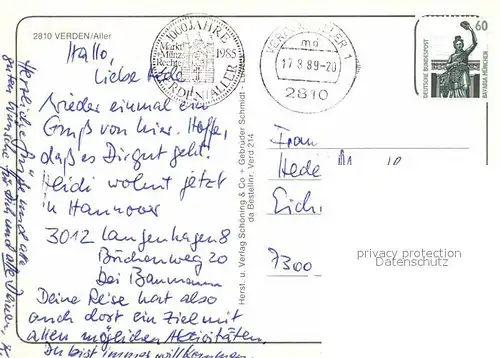 2810 VERDEN/Aller
Hallo,
Liebe Hede
Wieder einmal ein
Gruß von hier. Hoffe,
daß es Dir gut geht.
Heidi wohnt jetzt
in Hannover
3012 Langenhagen 8
Bückenweg 20
bei Baumann
Deine Reise hat also
auch dort ein Ziel mit
allen möglichen Aktivitäten.
Du bist immer willkommen.
Herzliche Grüße und alle
guten Wünsche für Dich und alle Deinen,
1000 JAHRE
Markt
Münz
Rechte
1985
VERDEN/ALLER
VERDEN, ALLER 1
md
17.9.89-20
2810
60
DEUTSCHE BUNDESPOST
BAVARIA MÜNCHEN
Herst. u. Verlag Schöning & Co + Gebrüder Schmidt -
da Bestellnr. Verd 214
Frau
Hede
Eich
7300
privacy protection
Datenschutz